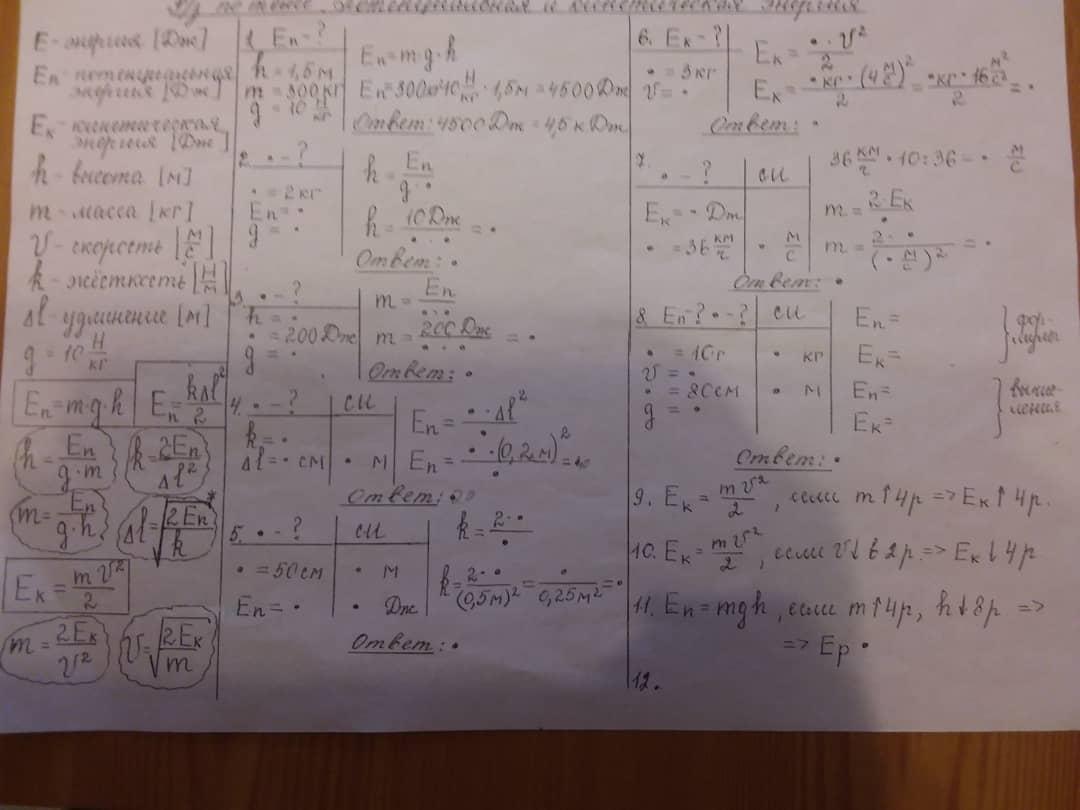 Дз по теме Потенциальная и кинетическая энергия
E - энергия [Дж]
Eп - потенциальная
энергия [Дж]
Eк - кинетическая
энергия [Дж]
h - высота [м]
m - масса [кг]
V - скорость [м/с]
k - жёсткость [Н/м]
Δl - удлинение [м]
g = 10 Н/кг
Eп = m·g·h
Eп = kΔl²/2
h = Eп/(g·m)
k = 2Eп/Δl²
m = Eп/(g·h)
Δl = √(2Eп/k) *
Eк = mV²/2
m = 2Eк/V²
V = √(2Eк/m)
1. Eп - ?
h = 1,5 м
m = 300 кг
g = 10 Н/кг
Eп = m·g·h
Eп = 300кг·10 Н/кг · 1,5м = 4500 Дж
Ответ: 4500 Дж = 4,5 кДж
2. • - ?
• = 2кг
Eп = •
g = •
h = Eп/(g·•)
h = 10Дж/(•·•) = •
Ответ: •
3. • - ?
h = •
• = 200 Дж
g = •
m = Eп/(•·•)
m = 200 Дж/(•·•) = •
Ответ: •
4. • - ?
СИ
k = •
Δl = • см
• м
Eп = •·Δl²/•
Eп = •·(0,2м)²/• = •
Ответ: •
5. • - ?
СИ
• = 50см
• м
Eп = •
• Дж
k = 2·•/•
k = 2·•/(0,5м)² = •/0,25м² = •
Ответ: •
6. Eк - ?
• = 3кг
V = •
Eк = •·V²/2
Eк = •кг·(4 м/с)²/2 = •кг·16 м²/с²/2 = •
Ответ: •
7. • - ?
СИ
Eк = • Дж
• = 36 км/ч
• м/с
36 км/ч · 10 : 36 = • м/с
m = 2·Eк/•
m = 2·•/(• м/с)² = •
Ответ: •
8. Eп - ? • - ?
СИ
• = 10г
• кг
V = •
• = 80см
• м
g = •
Eп =
Eк =
} формулы
Eп =
Eк =
} вычисления
Ответ: •
9. Eк = mV²/2, если m↑4р => Eк↑4р.
10. Eк = mV²/2, если V↓ в 2р => Eк↓4р
11. Eп = mgh, если m↑4р, h↓8р =>
=> Ep •
12.